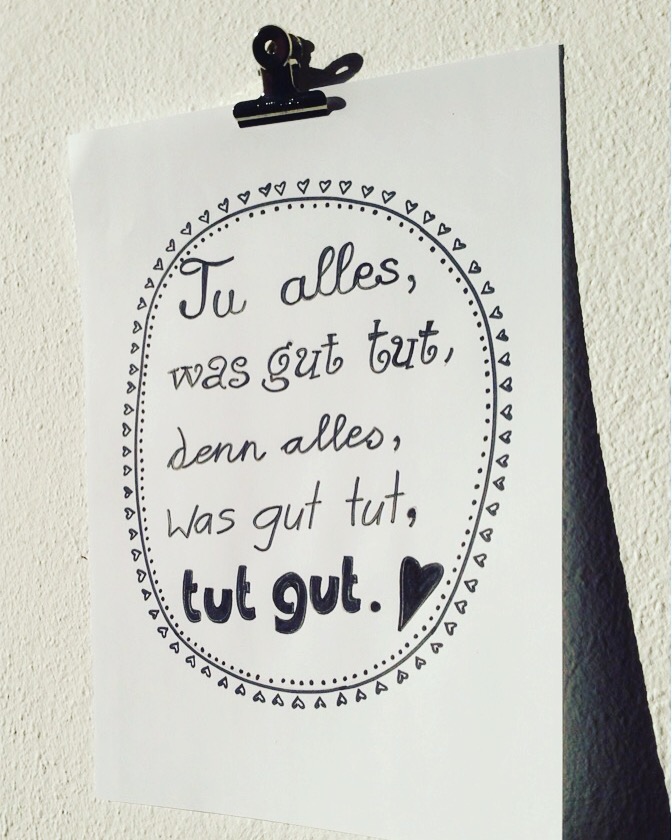 Tu alles,
was gut tut,
denn alles,
was gut tut,
tut gut.